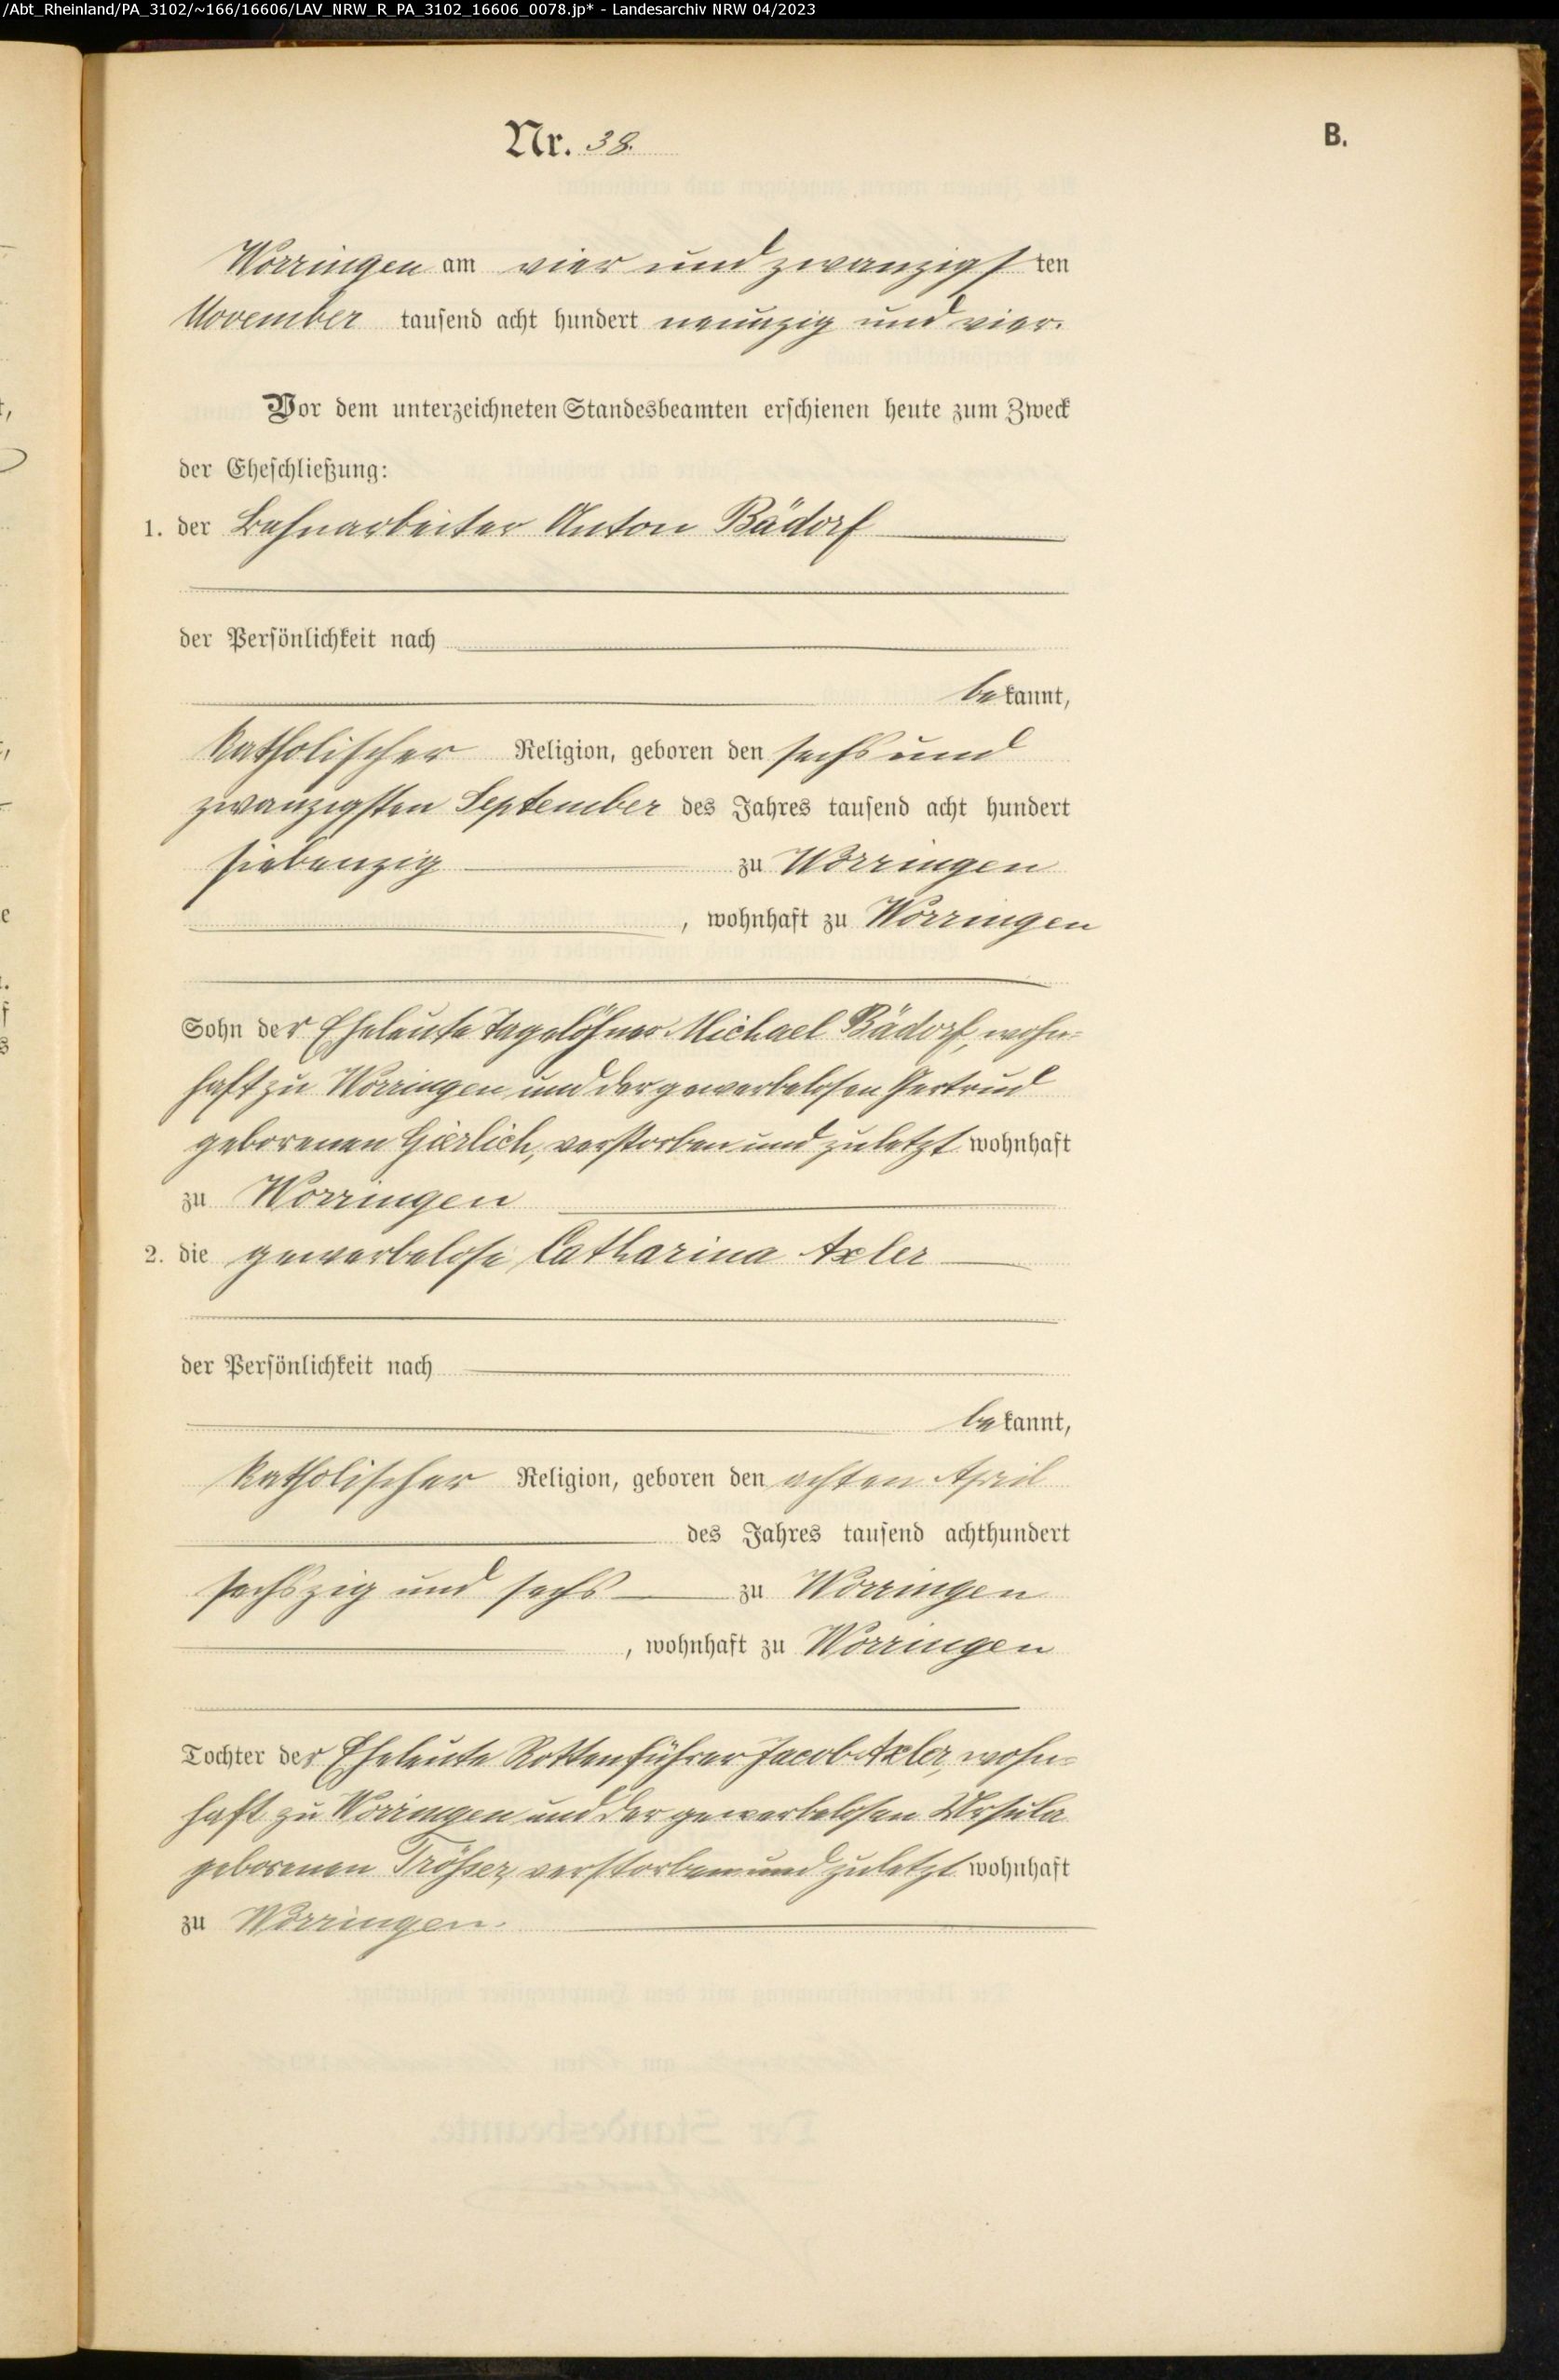 /Abt_Rheinland/PA_3102/~166/16606/LAV_NRW_R_PA_3102_16606_0078.jp* - Landesarchiv NRW 04/2023
Nr. 38.
B.
Worringen am vier und zwanzigsten
November tausend acht hundert neunzig und vier.
Vor dem unterzeichneten Standesbeamten erschienen heute zum Zweck
der Eheschließung:
1. der Bahnarbeiter Anton Bädorf
der Persönlichkeit nach
bekannt,
katholischer Religion, geboren den sechs und
zwanzigsten September des Jahres tausend acht hundert
siebenzig zu Worringen
, wohnhaft zu Worringen
Sohn der Eheleute Tagelöhner Michael Bädorf, wohn-
haft zu Worringen und der gewerbelosen Gertrud
geborenen Gierlich, verstorben und zuletzt wohnhaft
zu Worringen
2. die gewerbelose Catharina Axler
der Persönlichkeit nach
bekannt,
katholischer Religion, geboren den achten April
des Jahres tausend achthundert
sechszig und sechs zu Worringen
, wohnhaft zu Worringen
Tochter der Eheleute Rottenführer Jacob Axler, wohn-
haft zu Worringen und der gewerbelosen Ursula
geborenen verstorben und zuletzt wohnhaft
zu Worringen.